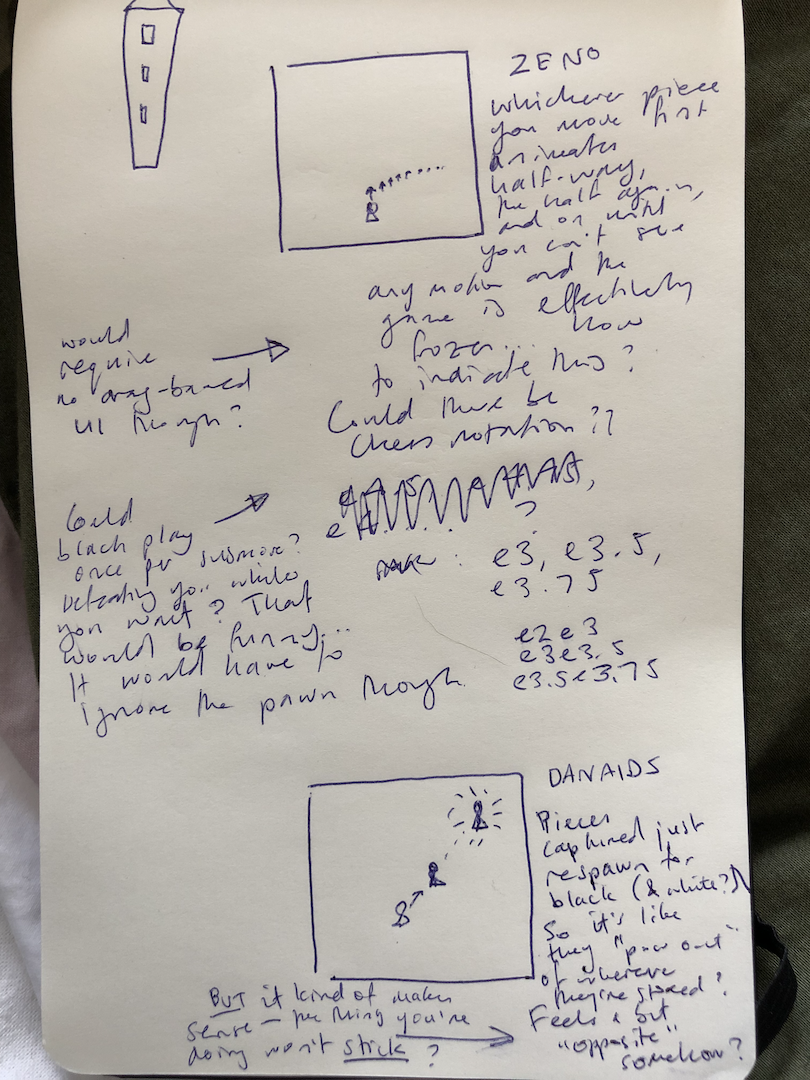 ZENO
whichever piece
you move first
animates
half-way,
the half again,
and on until
you can't see
any motion and the
game is effectively
frozen... how
to indicate this?
Could there be
chess notation??
would
require
no drag-based
UI though?
Could
black play
once per submove?
Defeating you while
you wait? That
would be funny...
It would have to
ignore the pawn though.
?
e3, e3.5,
e3.75
e2e3
e3e3.5
e3.5e3.75
DANAIDS
Pieces
captured just
respawn for
black (& white?)
So it's like
they "pour out"
of wherever
they're stored?
Feels a bit
"opposite"
somehow?
BUT it kind of makes
sense – the thing you're
doing won't stick?